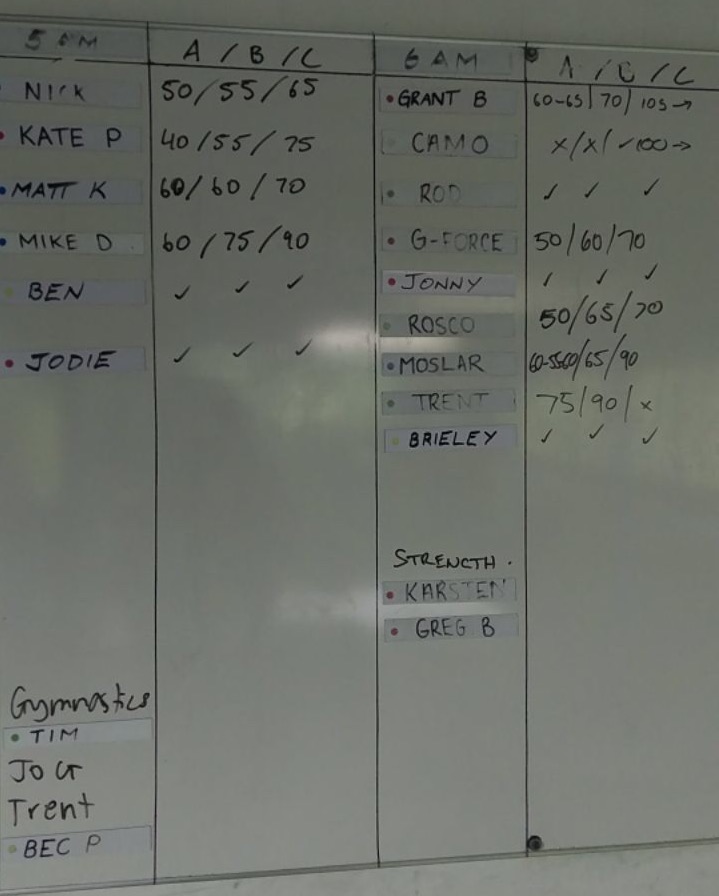 5 AM A / B / C
NICK 50/55/65
KATE P 40/55/75
MATT K 60/60/70
MIKE D 60/75/90
BEN ✓ ✓ ✓
JODIE ✓ ✓ ✓
Gymnastics
TIM
Jo G
Trent
BEC P
6 AM A / B / C
GRANT B 60-65/70/105→
CAMO x/x/✓100→
ROD ✓ ✓ ✓
G-FORCE 50/60/70
JONNY ✓ ✓ ✓
ROSCO 50/65/70
MOSLAR 60-5560/65/90
TRENT 75/90/x
BRIELEY ✓ ✓ ✓
STRENGTH.
KARSTEN
GREG B